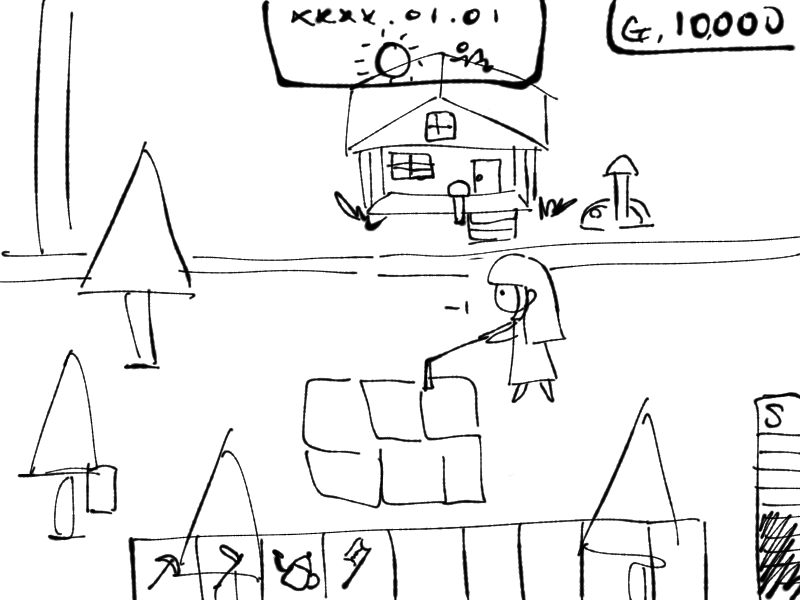 xxxx.01.01
G. 10,000
-1
S